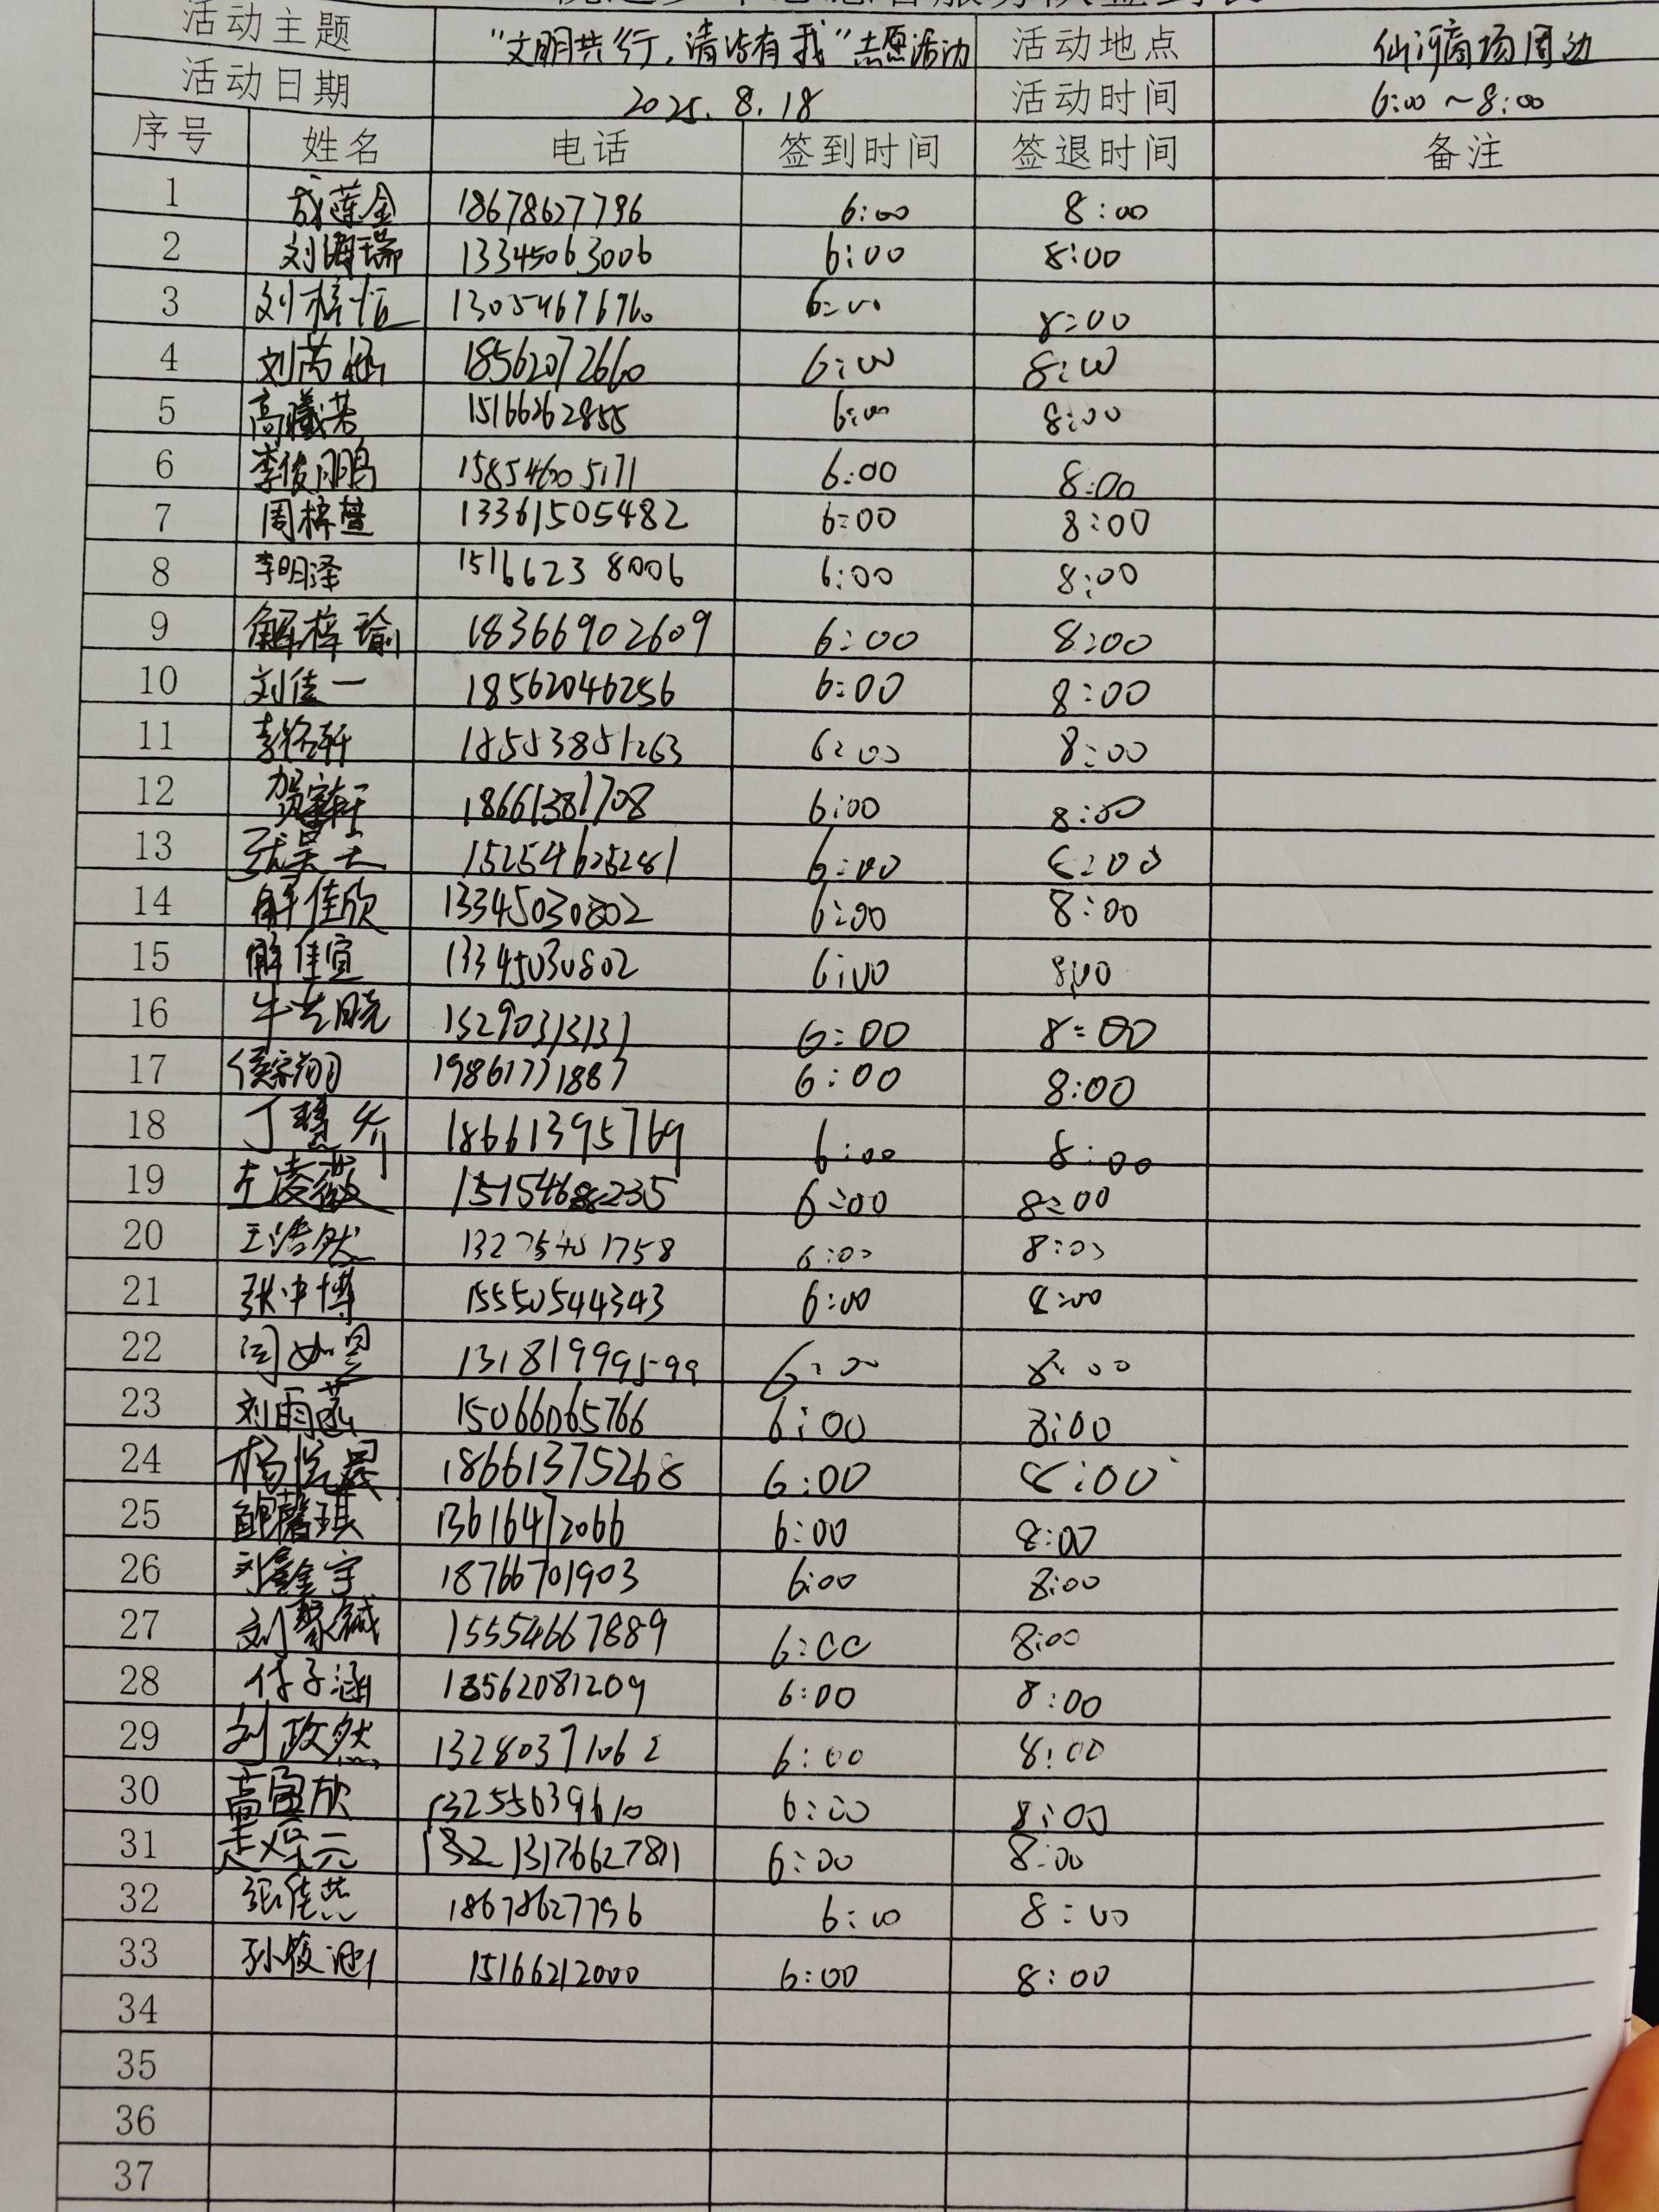 活动主题 "文明共行，清洁有我"志愿活动 活动地点 仙河商场周边
活动日期 2025.8.18 活动时间 6:00～8:00
序号 姓名 电话 签到时间 签退时间 备注
1 成莲金 18678627796 6:00 8:00
2 刘海瑞 13345063006 6:00 8:00
3 刘梓恒 13054676760 6:00 8:00
4 刘芮涵 18562072660 6:00 8:00
5 高曦若 15166262855 6:00 8:00
6 李俊鹏 15854605171 6:00 8:00
7 周梓萱 13361505482 6:00 8:00
8 李明泽 15166238006 6:00 8:00
9 解梓瑜 18366902609 6:00 8:00
10 刘佳一 18562046256 6:00 8:00
11 18553851263 6:00 8:00
12 18661381708 6:00 8:00
13 张昊天 15254625281 6:00 8:00
14 解佳欣 13345030802 6:00 8:00
15 解佳宜 13345030802 6:00 8:00
16 15290313131 6:00 8:00
17 侯宗翔 19861771887 6:00 8:00
18 18661395769 6:00 8:00
19 左凌薇 6:00 8:00
20 王浩然 6:00 8:00
21 张中博 15550544343 6:00 8:00
22 闫如昱 6:00 8:00
23 刘雨菡 15066065766 6:00 8:00
24 杨悦晨 18661375268 6:00 8:00
25 鲍馨琪 13616472066 6:00 8:00
26 刘鑫宇 18766701903 6:00 8:00
27 15554667889 6:00 8:00
28 付子涵 18562081209 6:00 8:00
29 刘政然 13280371062 6:00 8:00
30 13255639610 6:00 8:00
31 6:00 8:00
32 张佳慧 18678627796 6:00 8:00
33 15166212000 6:00 8:00
34
35
36
37